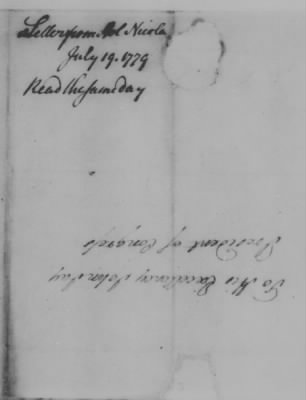 Letter from Col Nicola
July 19. 1779
Read the same day
To His Excellency John Jay
President of Congress